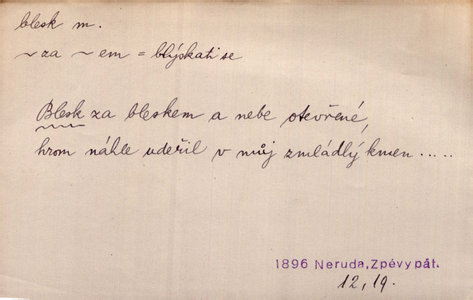 blesk m.
~ za ~ em = blýskati se
Blesk za bleskem a nebe otevřené,
hrom náhle udeřil v můj zmládlý kmen.....
1896 Neruda, Zpěvy pát.
12, 19.